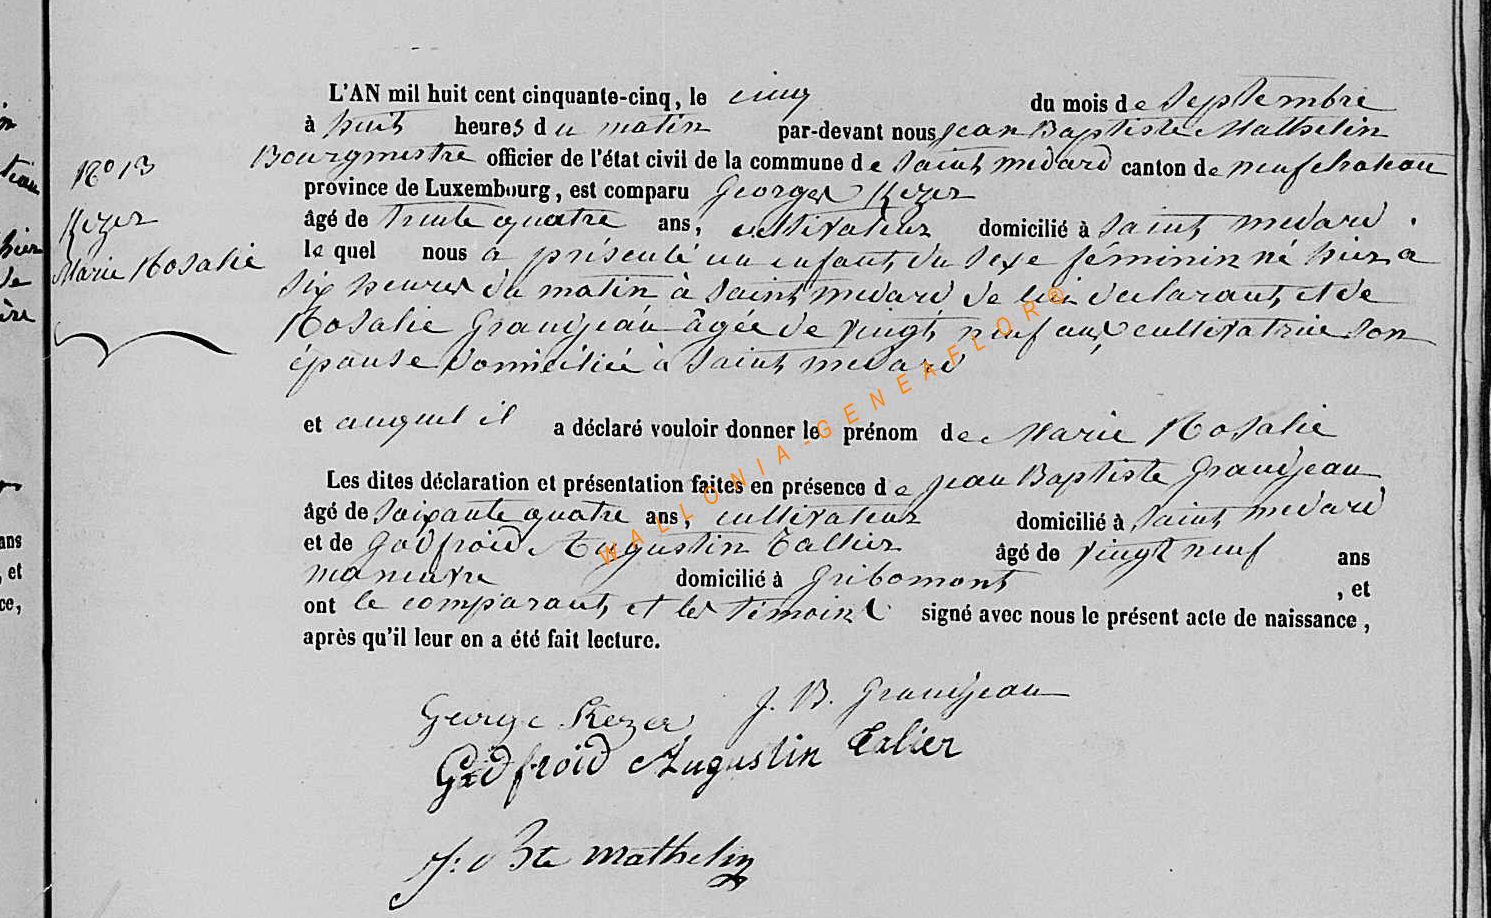 L'AN mil huit cent cinquante-cinq, le cinq du mois de Septembre
à huit heures du matin par-devant nous Jean Baptiste Mathelin
Bourgmestre officier de l'état civil de la commune de Saint medard canton de neufchateau
province de Luxembourg, est comparu Georges Kezer
âgé de trente quatre ans, cultivateur domicilié à Saint medard.
le quel nous a présenté un enfant du Sexe féminin né hier a
Six heures du matin à Saint medard de lui déclarant, et de
Rosalie Grandjean âgée de vingt neuf ans cultivatrice Son
épouse domiciliée à Saint medard
et auquel il a déclaré vouloir donner le prénom de Marie Rosalie
Les dites déclaration et présentation faites en présence de Jean Baptiste Grandjean
âgé de Soixante quatre ans, cultivateur domicilié à Saint medard
et de Godfroid Augustin Tallier âgé de vingt neuf ans
maneuvre domicilié à Gribomont, et
ont le comparant, et les témoins signé avec nous le présent acte de naissance,
après qu'il leur en a été fait lecture.
George Kezer J. B. Grandjean
Godfroid Augustin Talier
J: Bte Mathelin
N° 13
Kezer
Marie Rosalie
hier
ans
, et
ce,
WALLONIA-GENEAFLOR©